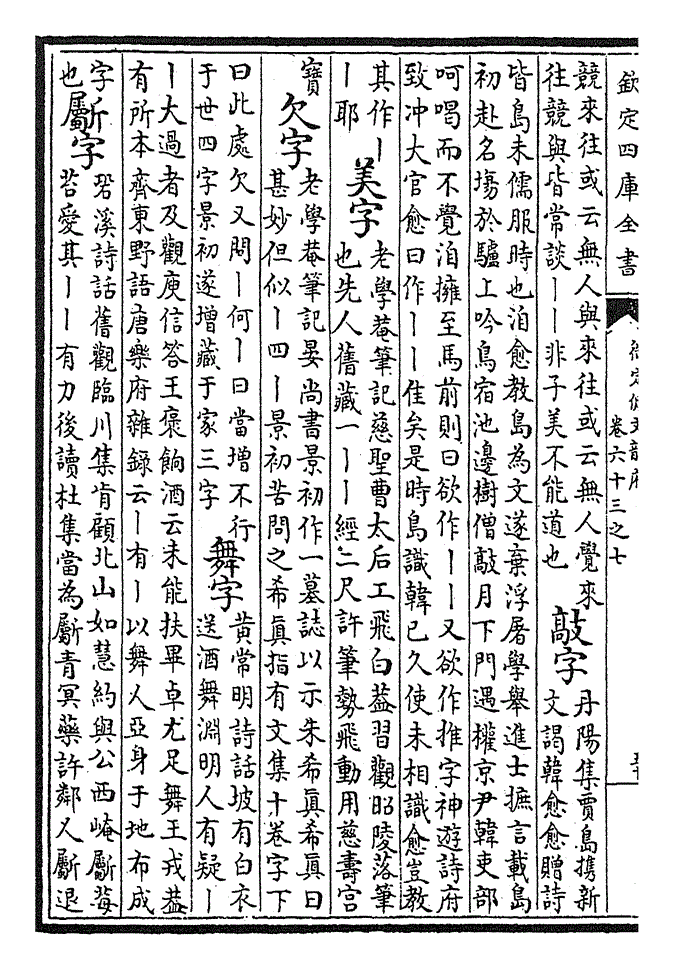 欽定四庫全書
卷六十三之七
競來往或云無人與來往或云無人覺來
往競與皆常談丨丨非子美不能道也
敲字
丹陽集賈島携新
文謁韓愈愈贈詩
皆島未儒服時也洎愈教島為文遂棄浮屠學舉進士摭言載島
初赴名塲於驢上吟鳥宿池邊樹僧敲月下門遇權京尹韓吏部
呵喝而不覺洎擁至馬前則曰欲作丨丨又欲作推字神遊詩府
致冲大官愈曰作丨丨佳矣是時島識韓已久使未相識愈豈教
其作丨
丨耶
美字
老學菴筆記慈聖曹太后工飛白葢習觀昭陵落筆
也先人舊藏一丨丨經二尺許筆勢飛動用慈壽宫
寶
欠字
老學菴筆記晏尚書景初作一墓誌以示朱希眞希眞曰
甚妙但似丨四丨景初苦問之希眞指有文集十卷字下
曰此處欠又問丨何丨曰當增不行
于世四字景初遂增藏于家三字
舞字
黄常明詩話坡有白衣
送酒舞淵明人有疑丨
丨大過者及觀庾信答王褒餉酒云未能扶畢卓尤足舞王戎葢
有所本齊東野語唐樂府雜錄云丨有丨以舞人亞身于地布成
字
也
斸字
䂬溪詩話舊觀臨川集肯顧北山如慧約與公西崦斸莓
苔愛其丨丨有力後讀杜集當為斸青冥藥許鄰人斸退